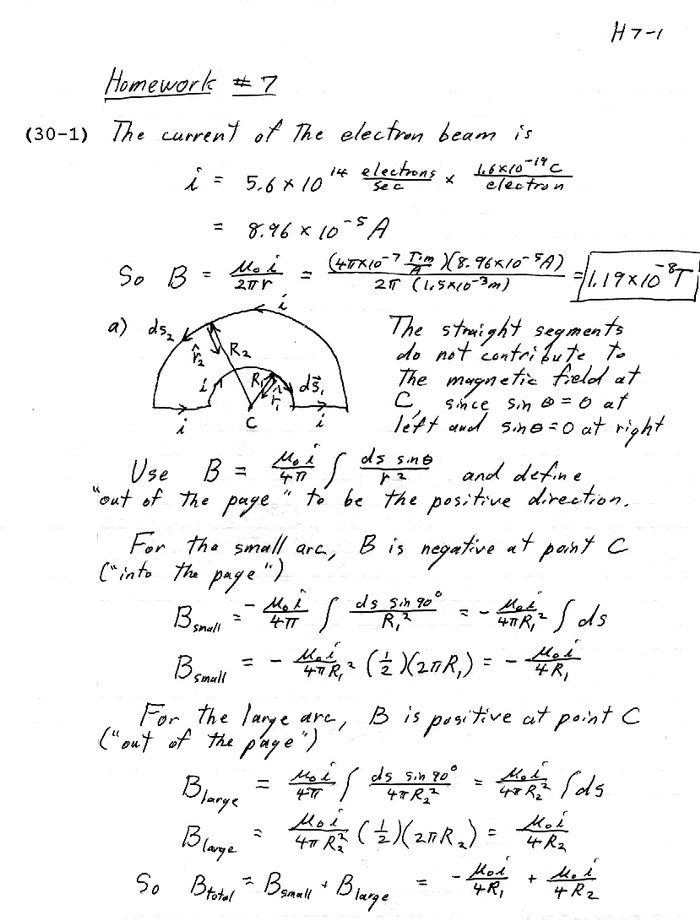 H7-1
Homework # 7
(30-1) The current of the electron beam is
i = 5.6 × 10^14 electrons/sec × 1.6×10^-19 C/electron
= 8.96 × 10^-5 A
So B = μ₀i/2πr = (4π×10^-7 T·m/A)(8.96×10^-5 A)/2π(1.5×10^-3 m) = 1.19×10^-8 T
a) ds₂ r̂₂ R₂ i i R₁ r̂₁ ds⃗₁ i C i
The straight segments
do not contribute to
the magnetic field at
C, since sin θ = 0 at
left and sin θ = 0 at right
Use B = μ₀i/4π ∫ ds sinθ/r² and define
"out of the page" to be the positive direction.
For the small arc, B is negative at point C
("into the page")
B_small = -μ₀i/4π ∫ ds sin 90°/R₁² = -μ₀i/4πR₁² ∫ ds
B_small = -μ₀i/4πR₁² (1/2)(2πR₁) = -μ₀i/4R₁
For the large arc, B is positive at point C
("out of the page")
B_large = μ₀i/4π ∫ ds sin 90°/4πR₂² = μ₀i/4πR₂² ∫ ds
B_large = μ₀i/4πR₂² (1/2)(2πR₂) = μ₀i/4R₂
So B_total = B_small + B_large = -μ₀i/4R₁ + μ₀i/4R₂